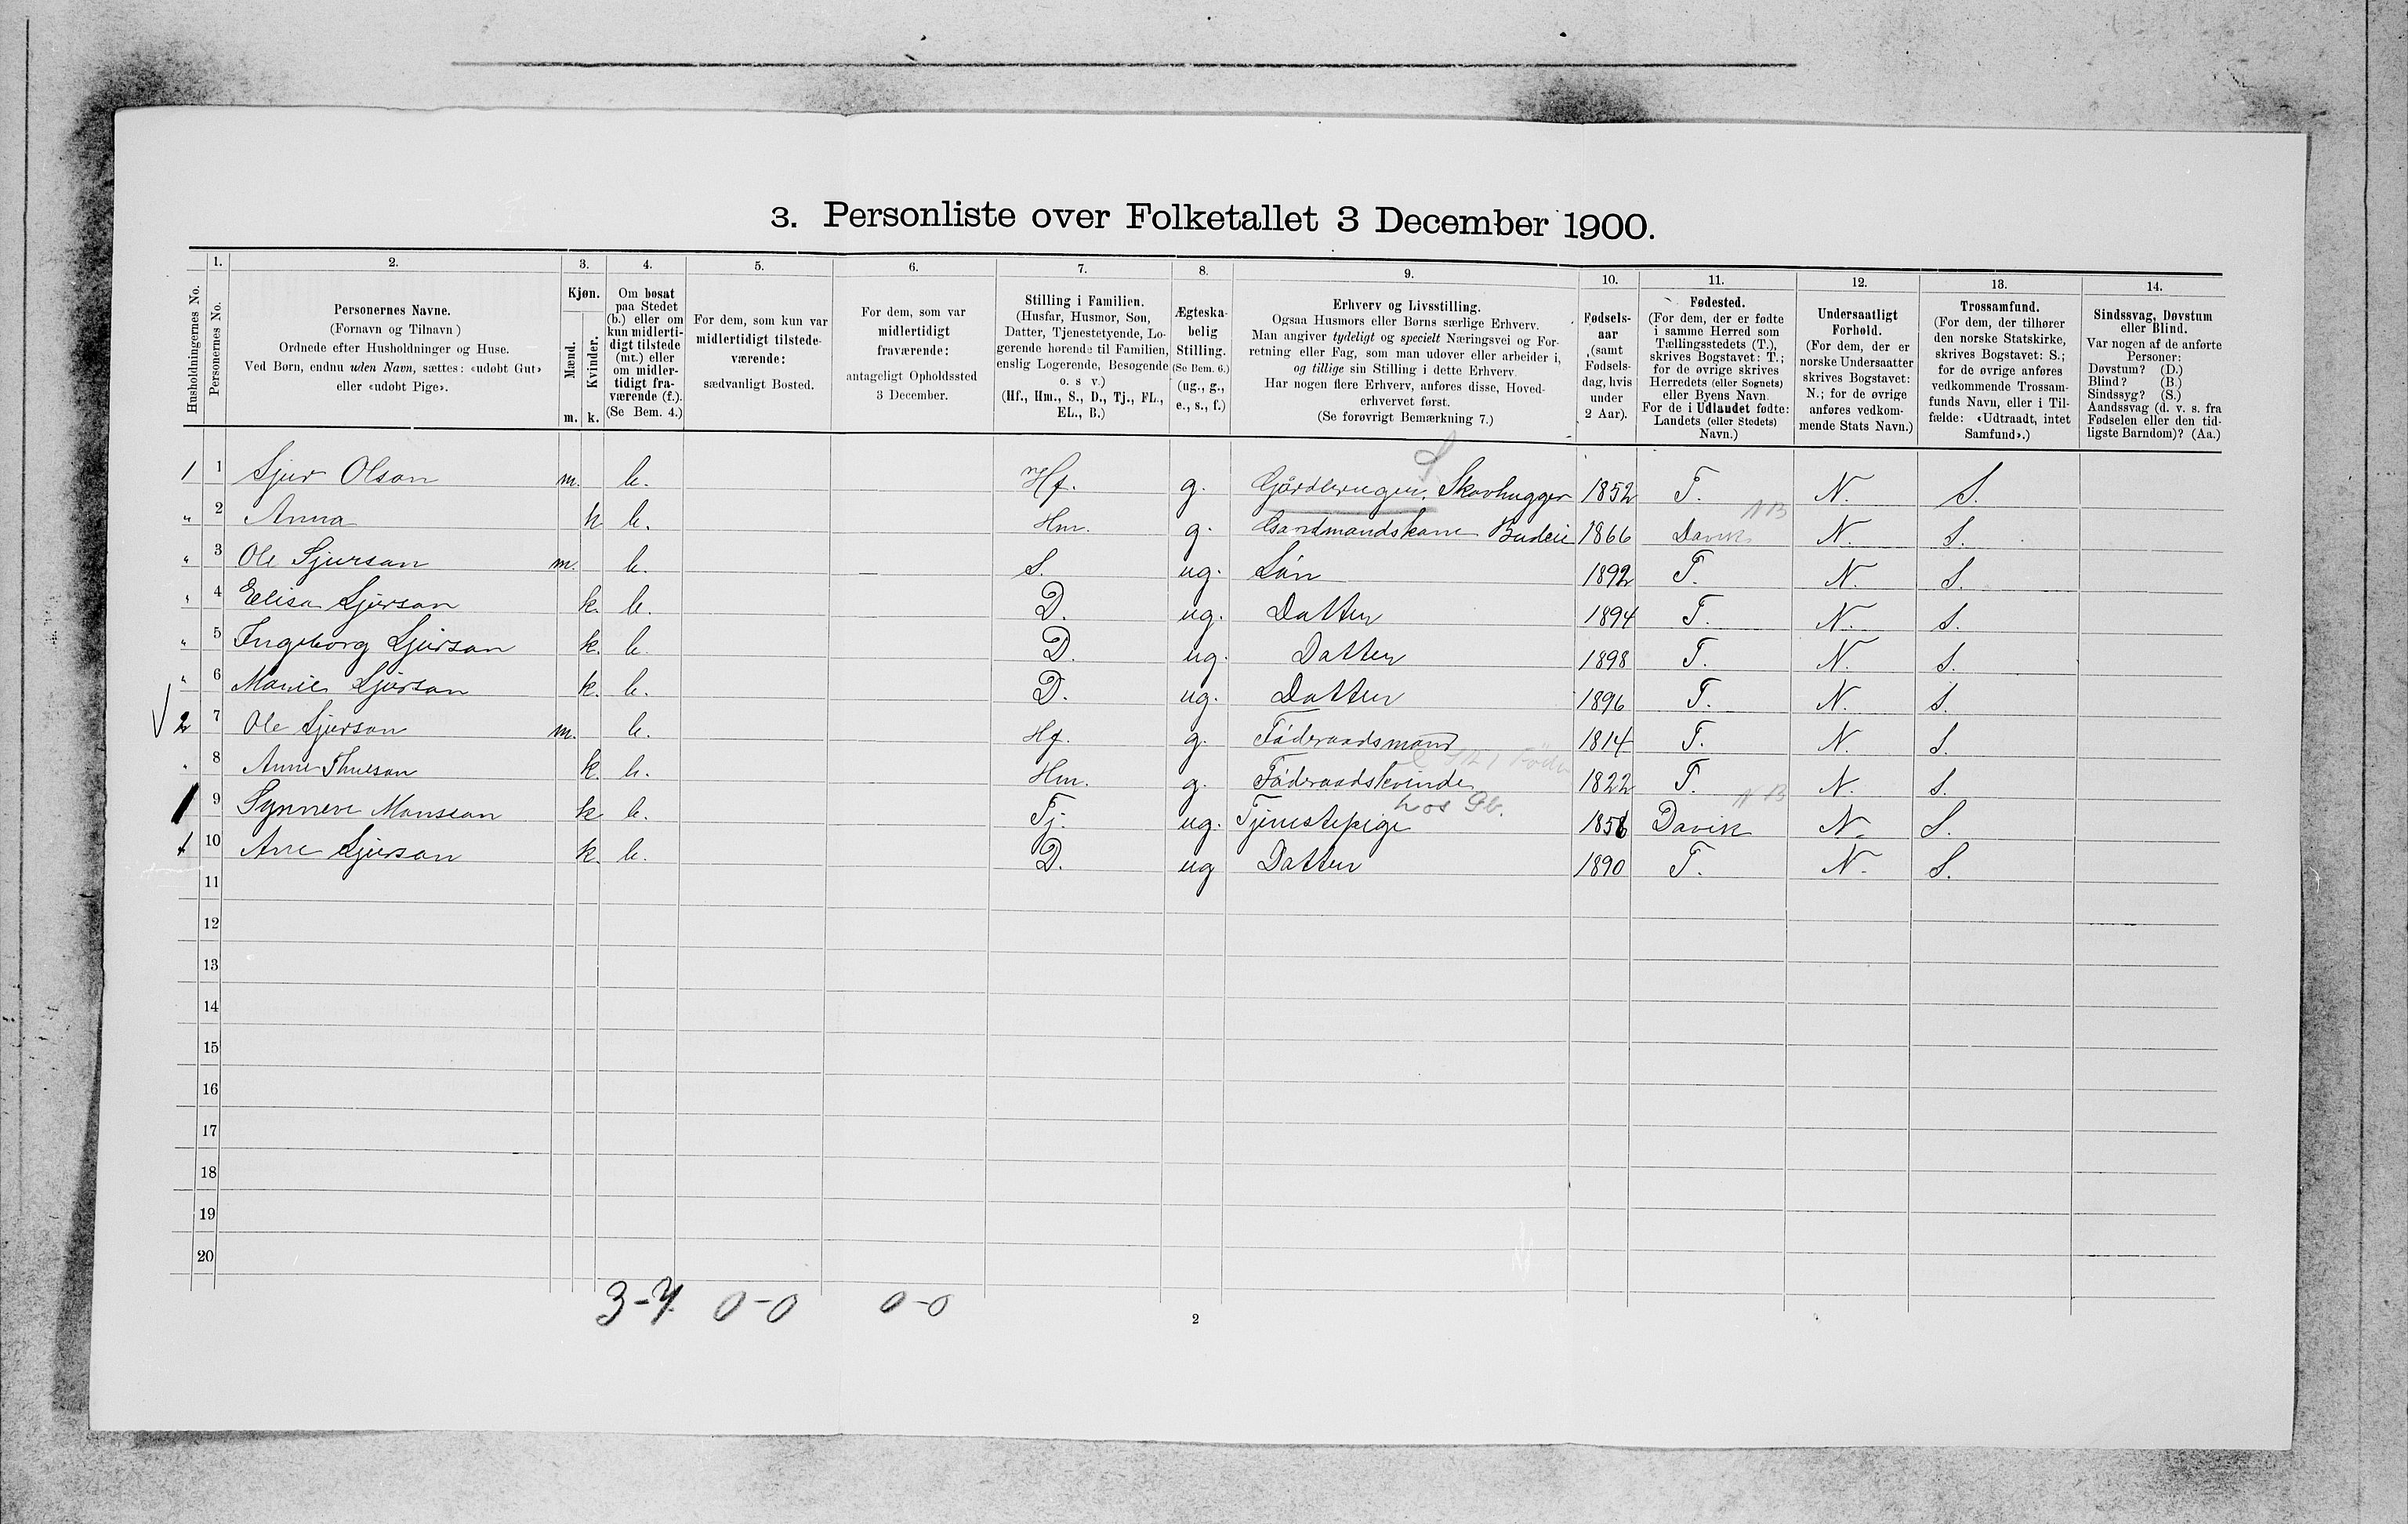 3. Personliste over Folketallet 3 December 1900.
Husholdningernes No.
1.
Personernes No.
2.
Personernes Navne.
(Fornavn og Tilnavn)
Ordnede efter Husholdninger og Huse.
Ved Børn, endnu uden Navn, sættes: «udøbt Gut»
eller «udøbt Pige».
3.
Kjøn.
Mænd. Kvinder.
m. k.
4.
Om bosat
paa Stedet
(b.) eller om
kun midlerti-
digt tilstede
(mt.) eller
om midler-
tidigt fra-
værende (f.).
(Se Bem. 4.)
5.
For dem, som kun var
midlertidigt tilstede-
værende:
sædvanligt Bosted.
6.
For dem, som var
midlertidigt
fraværende:
antageligt Opholdssted
3 December.
7.
Stilling i Familien.
(Husfar, Husmor, Søn,
Datter, Tjenestetyende, Lo-
gerende hørende til Familien,
enslig Logerende, Besøgende
o. s v.)
(Hf., Hm., S., D., Tj., FL.,
EL., B.)
8.
Ægteska-
belig
Stilling.
(Se Bem. 6.)
(ug., g.,
e., s., f.)
9.
Erhverv og Livsstilling.
Ogsaa Husmors eller Børns særlige Erhverv.
Man angiver tydeligt og specielt Næringsvei og For-
retning eller Fag, som man udøver eller arbeider i,
og tillige sin Stilling i dette Erhverv.
Har nogen flere Erhverv, anføres disse, Hoved-
erhvervet først.
(Se forøvrigt Bemærkning 7.)
10.
Fødsels-
aar
(samt
Fødsels-
dag, hvis
under
2 Aar).
11.
Fødested.
(For dem, der er fødte
i samme Herred som
Tællingsstedets (T.),
skrives Bogstavet: T.;
for de øvrige skrives
Herredets (eller Sognets)
eller Byens Navn.
For de i Udlandet fødte:
Landets (eller Stedets)
Navn.)
12.
Undersaatligt
Forhold.
(For dem, der er
norske Undersaatter
skrives Bogstavet:
N.; for de øvrige
anføres vedkom-
mende Stats Navn.)
13.
Trossamfund.
(For dem, der tilhører
den norske Statskirke,
skrives Bogstavet: S.;
for de øvrige anføres
vedkommende Trossam-
funds Navn, eller i Til-
fælde: «Udtraadt, intet
Samfund».)
14.
Sindssvag, Døvstum
eller Blind.
Var nogen af de anførte
Personer:
Døvstum? (D.)
Blind? (B.)
Sindssyg? (S.)
Aandssvag (d. v. s. fra
Fødselen eller den tid-
ligste Barndom)? (Aa.)
1 1 Sjur Olson m. b. Hf. g. Gårdbruger, Skovhugger 1852 T. N. S.
" 2 Anna k b. Hm. g. Gardmandskone Budeie 1866 Davik N. S.
" 3 Ole Sjurson m. b. S. ug. Sön 1892 T. N. S.
" 4 Elisa Sjurson k. b. D. ug. Datter 1894 T. N. S.
" 5 Ingeborg Sjurson k. b. D. ug. Datter 1898 T. N. S.
" 6 Marie Sjurson k. b. D. ug. Datter 1896 T. N. S.
2 7 Ole Sjurson m. b. Hf. g. Föderaadsmand 1814 T. N. S.
" 8 Anne b. k. Hm. g. Föderaadskvinde 1822 T. N. S.
1 9 Synneve Monsson k b. Tj. ug. Tjenestepige hos Gb. 1856 Davik N. S.
1 10 Ane Sjurson k. b. D. ug Datter 1890 T. N. S.
11
12
13
14
15
16
17
18
19
20
3-7 0-0 0-0
2